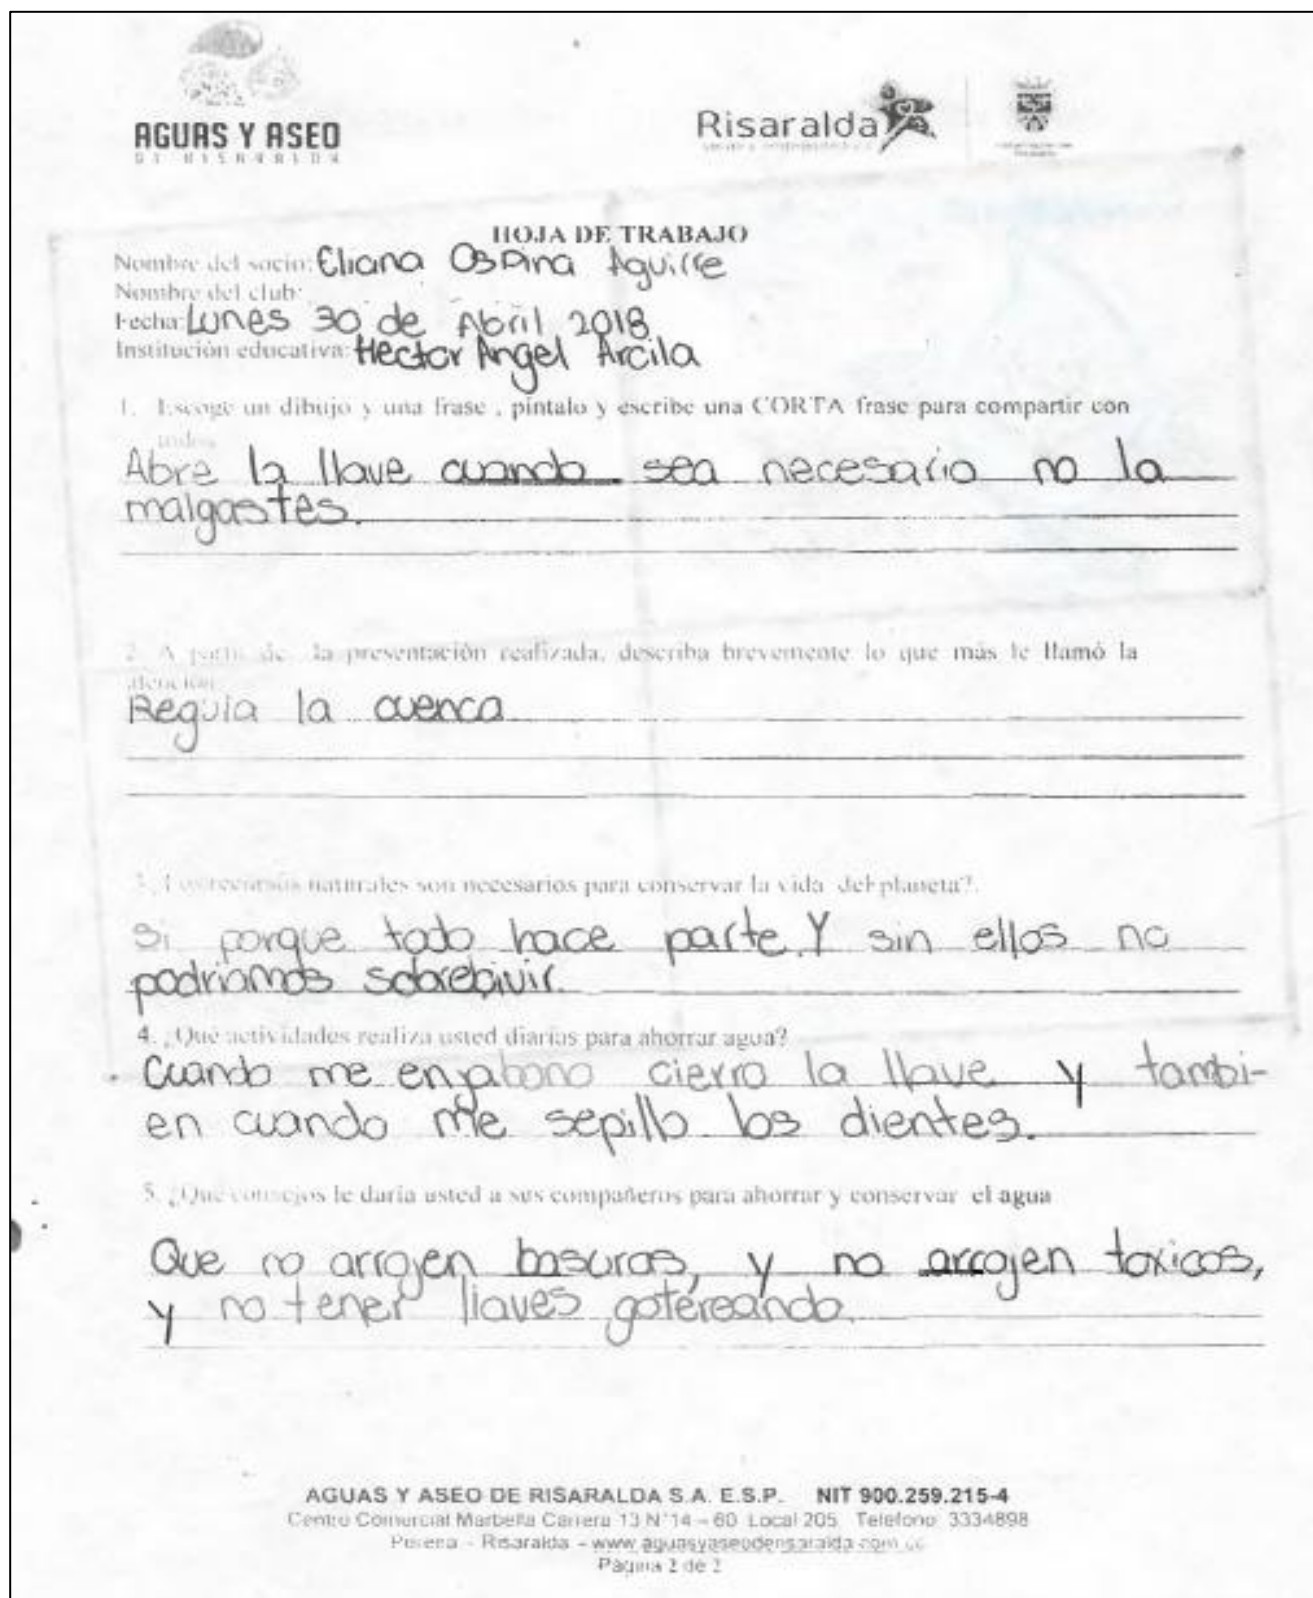 AGUAS Y ASEO
DE RISARALDA
Risaralda
HOJA DE TRABAJO
Nombre del socio: Eliana Ospina Aguirre
Nombre del club:
Fecha: Lunes 30 de Abril 2018
Institución educativa: Hector Angel Arcila
1. Escoge un dibujo y una frase , píntalo y escribe una CORTA frase para compartir con
todos
Abre la llave cuando sea necesario no la
malgastes.
2. A partir de la presentación realizada, describa brevemente lo que más le llamó la
atención
Regula la cuenca
3. ¿Los recursos naturales son necesarios para conservar la vida del planeta?.
Si porque todo hace parte. Y sin ellos no
podriamos sobrebivir.
4. ¿Qué actividades realiza usted diarias para ahorrar agua?
Cuando me enjabono cierro la llave y tambi-
en cuando me sepillo los dientes.
5. ¿Qué consejos le daría usted a sus compañeros para ahorrar y conservar el agua
Que no arrojen basuras, y no arrojen toxicos,
y no tener llaves gotereando.
AGUAS Y ASEO DE RISARALDA S.A. E.S.P. NIT 900.259.215-4
Centro Comercial Marbella Carrera 13 N°14 – 60 Local 205 Teléfono: 3334898
Pereira - Risaralda – www.aguasyaseoderisaralda.com.co
Página 2 de 2